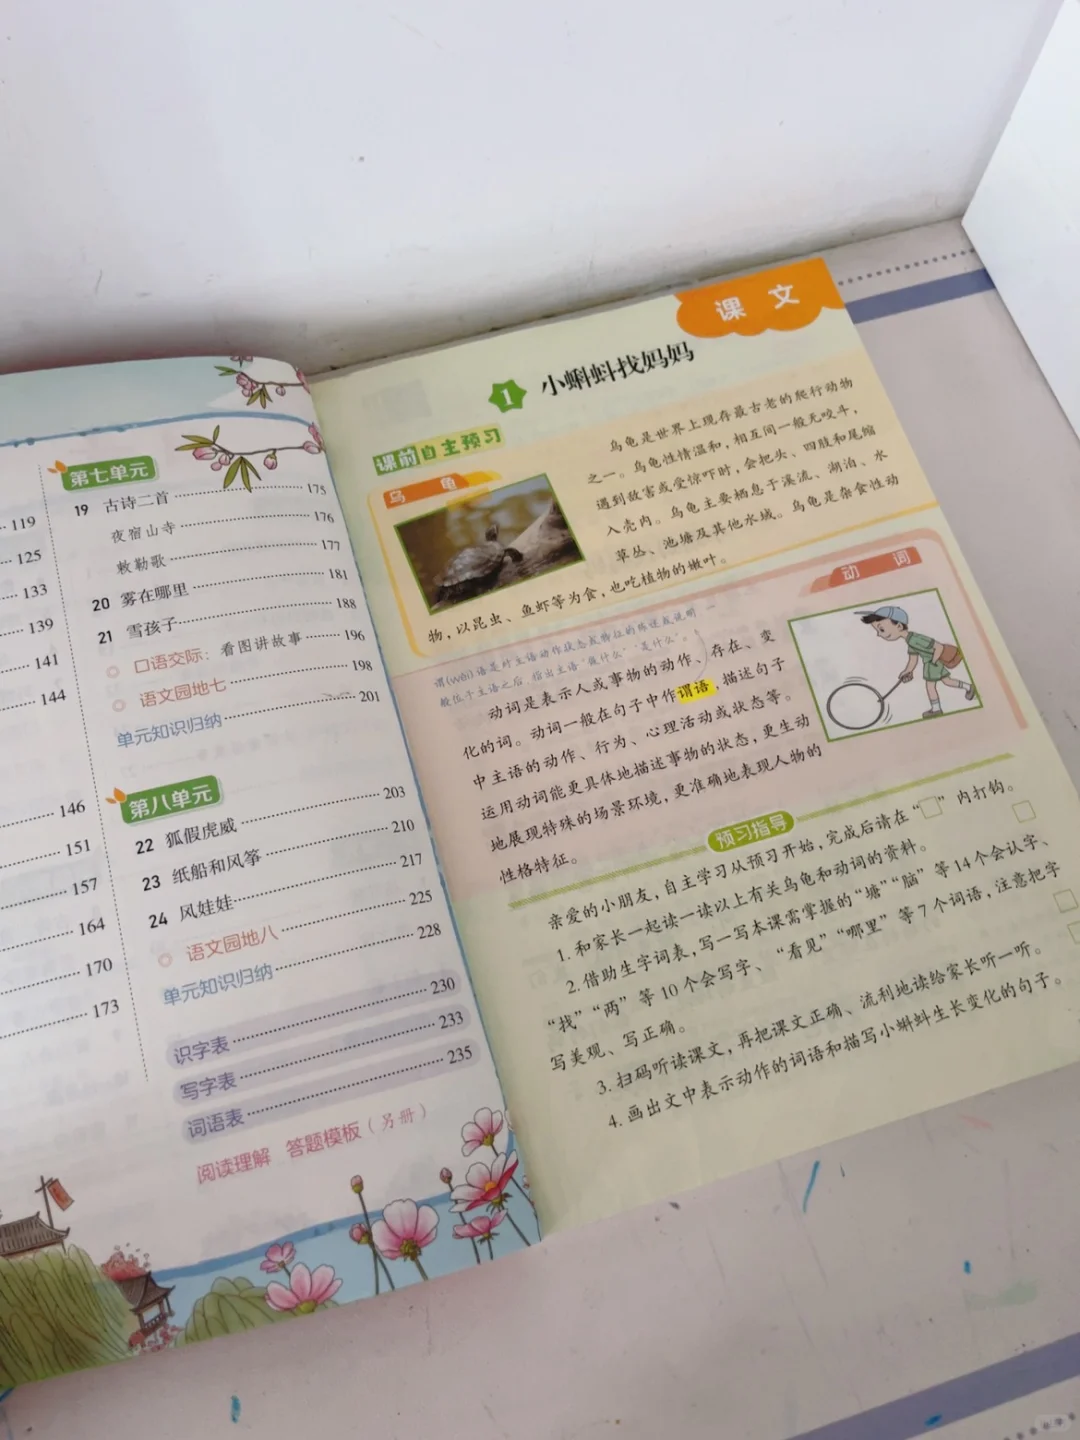 119
125
133
139
141
144
146
151
157
164
170
173
第七单元
19 古诗二首 175
夜宿山寺 176
敕勒歌 177
20 雾在哪里 181
21 雪孩子 188
口语交际：看图讲故事 196
语文园地七 198
单元知识归纳 201
第八单元
22 狐假虎威 203
23 纸船和风筝 210
24 风娃娃 217
语文园地八 225
单元知识归纳 228
识字表 230
写字表 233
词语表 235
阅读理解 答题模板（另册）
课文
1 小蝌蚪找妈妈
课前自主预习
乌龟
乌龟是世界上现存最古老的爬行动物
之一。乌龟性情温和，相互间一般无咬斗，
遇到敌害或受惊吓时，会把头、四肢和尾缩
入壳内。乌龟主要栖息于溪流、湖泊、水
草丛、池塘及其他水域。乌龟是杂食性动
物，以昆虫、鱼虾等为食，也吃植物的嫩叶。
动词
谓(wèi)语是对主语动作状态或特征的陈述或说明，一
般位于主语之后，指出主语“做什么”“是什么”。
动词是表示人或事物的动作、存在、变
化的词。动词一般在句子中作谓语，描述句子
中主语的动作、行为、心理活动或状态等。
运用动词能更具体地描述事物的状态，更生动
地展现特殊的场景环境，更准确地表现人物的
性格特征。
预习指导
亲爱的小朋友，自主学习从预习开始，完成后请在“□”内打钩。
1. 和家长一起读一读以上有关乌龟和动词的资料。
2. 借助生字词表，写一写本课需掌握的“塘”“脑”等14个会认字、
“找”“两”等10个会写字、“看见”“哪里”等7个词语，注意把字
写美观、写正确。
3. 扫码听读课文，再把课文正确、流利地读给家长听一听。
4. 画出文中表示动作的词语和描写小蝌蚪生长变化的句子。